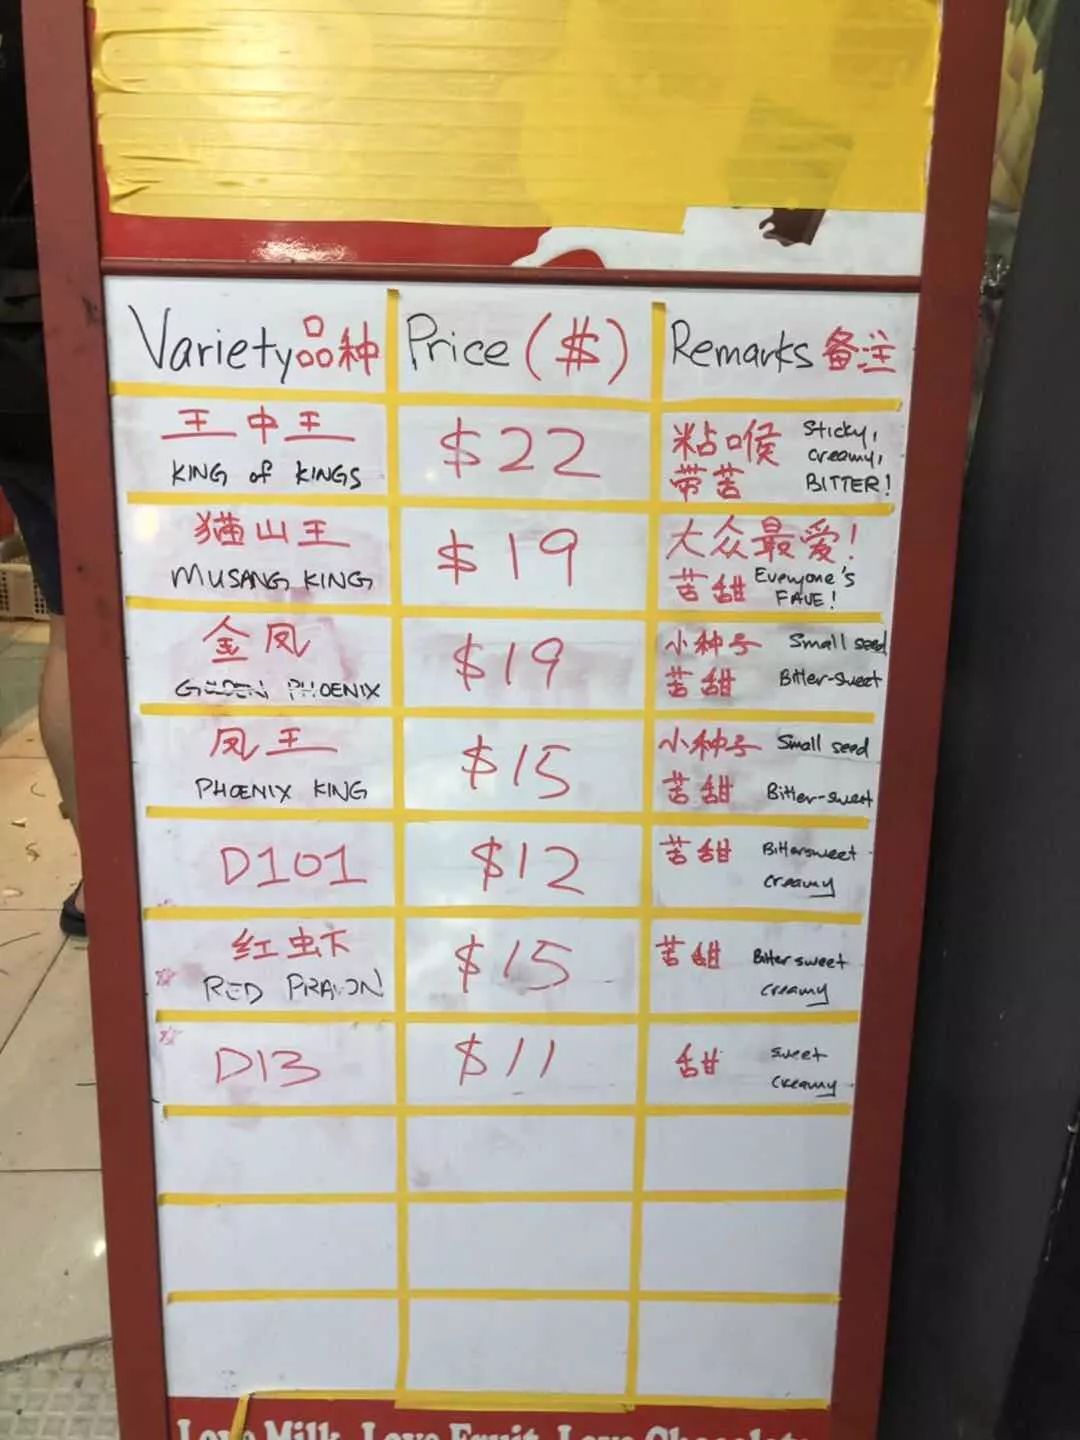 Variety品种 Price ($) Remarks 备注
王中王
KING of KINGS
$22
粘喉
带苦
Sticky,
creamy,
BITTER!
猫山王
MUSANG KING
$19
大众最爱!
苦甜
Everyone's
FAVE!
金凤
GOLDEN PHOENIX
$19
小种子 Small seed
苦甜 Bitter-sweet
凤王
PHOENIX KING
$15
小种子 Small seed
苦甜 Bitter-sweet
D101
$12
苦甜
Bittersweet
creamy
红虾
RED PRAWN
$15
苦甜
Bitter sweet
creamy
D13
$11
甜
sweet
creamy
Love Milk, Love Fruit, Love Chocolate